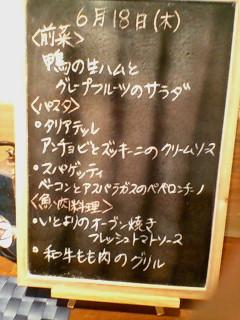 6月18日(木)
<前菜>
鴨の生ハムと
グレープフルーツのサラダ
<パスタ>
•タリアテッレ
アンチョビとズッキーニのクリームソース
•スパゲッティ
ベーコンとアスパラガスのペペロンチーノ
<魚・肉料理>
•いとよりのオーブン焼き
フレッシュトマトソース
•和牛もも肉のグリル